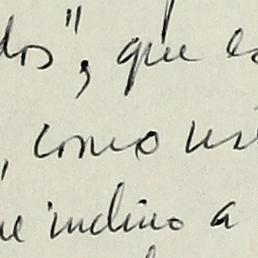 dos"; que es
, como us
ue indino a